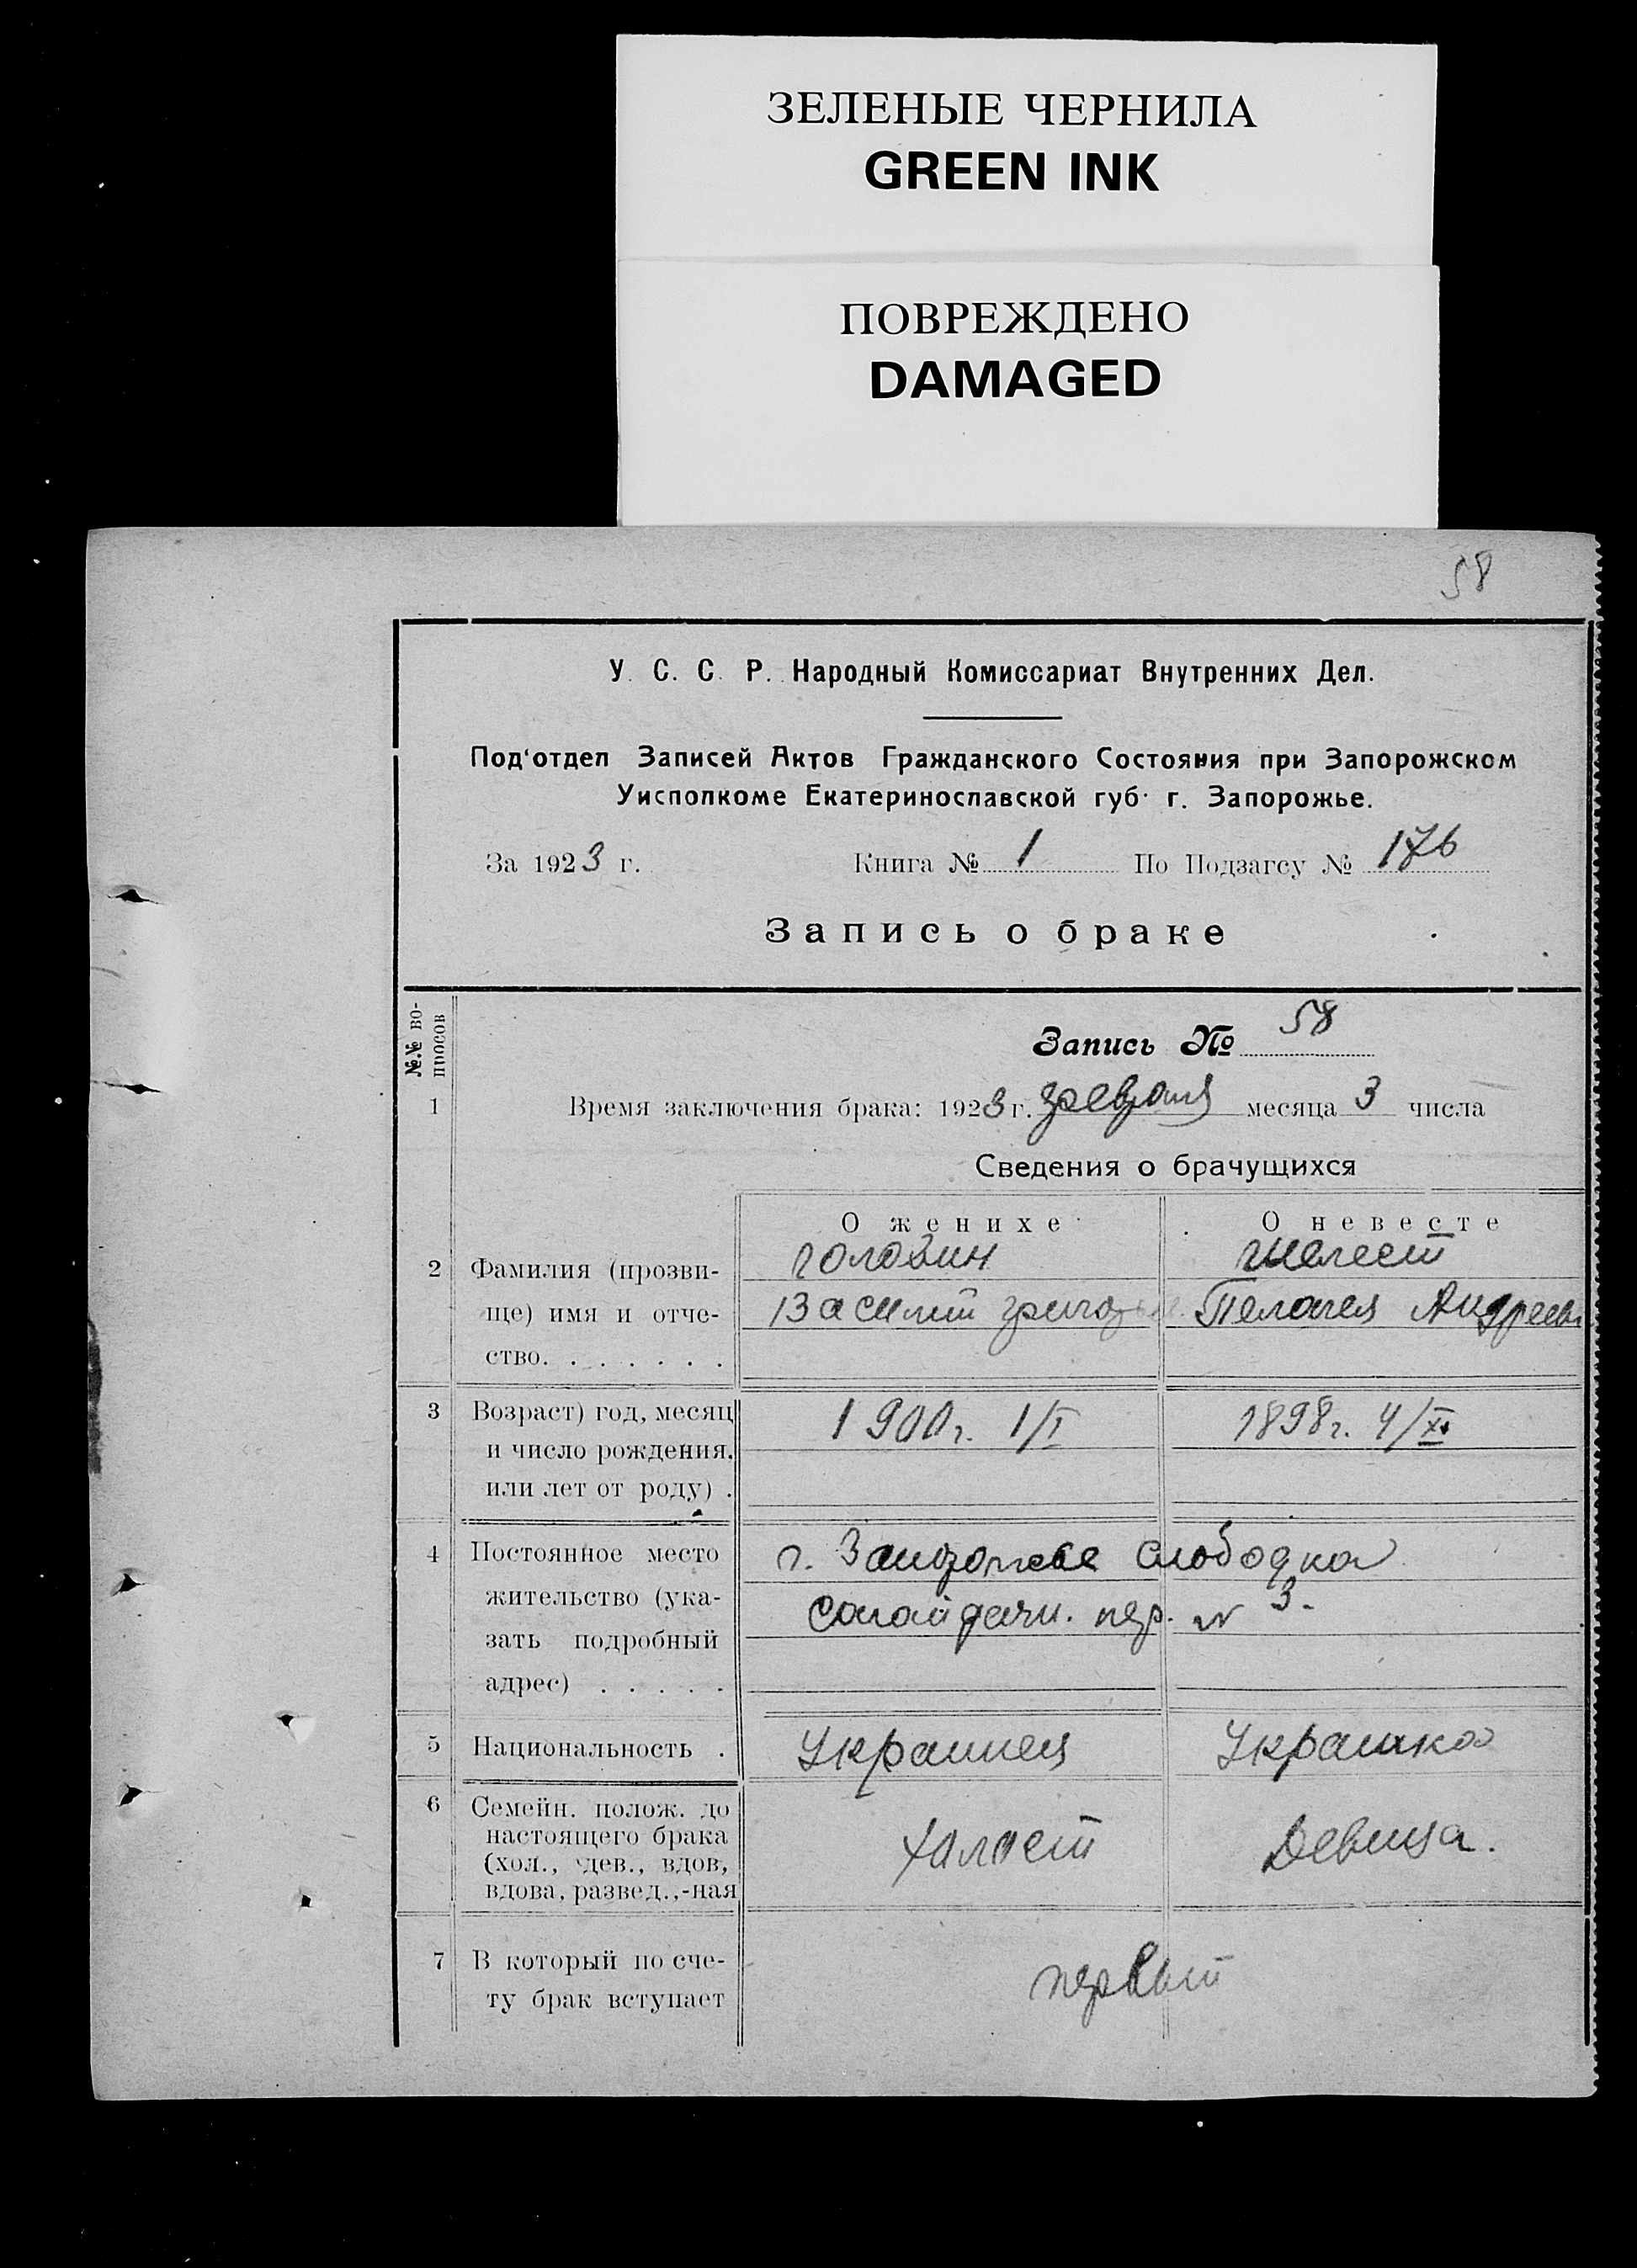 ЗЕЛЕНЫЕ ЧЕРНИЛА
GREEN INK
ПОВРЕЖДЕНО
DAMAGED
58
У. С. С. Р. Народный Комиссариат Внутренних Дел.
Под'отдел Записей Актов Гражданского Состояния при Запорожском
Уисполкоме Екатеринославской губ. г. Запорожье.
За 1923 г. Книга № 1 По Подзагсу № 176
Запись о браке
№.№ во-
просов
Запись № 58
1 Время заключения брака: 1923 г. февраля месяца 3 числа
Сведения о брачущихся
О женихе О невесте
Головин Шелест
2 Фамилия (прозви-
ще) имя и отче- Василий Пелагея Андреевн
ство. . . . . . .
3 Возраст) год, месяц 1900 г. 1/I 1898 г. 4/XI
и число рождения.
или лет от роду) .
4 Постоянное место г. Запорожье Слободка
жительство (ука- Сагайдачн. пер. № 3.
зать подробный
адрес) . . . . .
5 Национальность . Украинец Украинка
6 Семейн. полож. до
настоящего брака
(хол., дев., вдов, Халост Девица.
вдова, развед.,-ная
7 В который по сче- первый
ту брак вступает